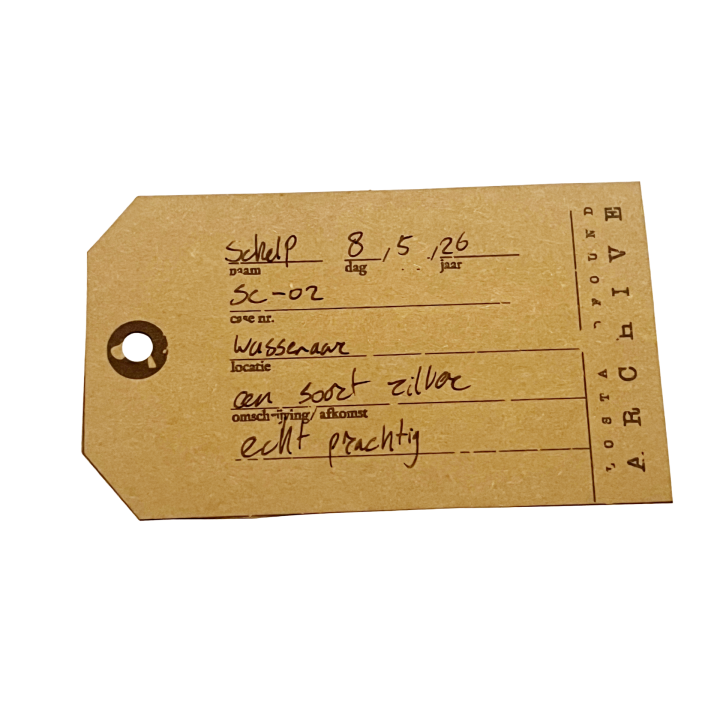 Schelp 8 , 5 , 26
naam dag jaar
SC-02
case nr.
Wassenaar
locatie
een soort zilver
omschrijving/afkomst
echt prachtig
LOST & FOUND
ARChIVE